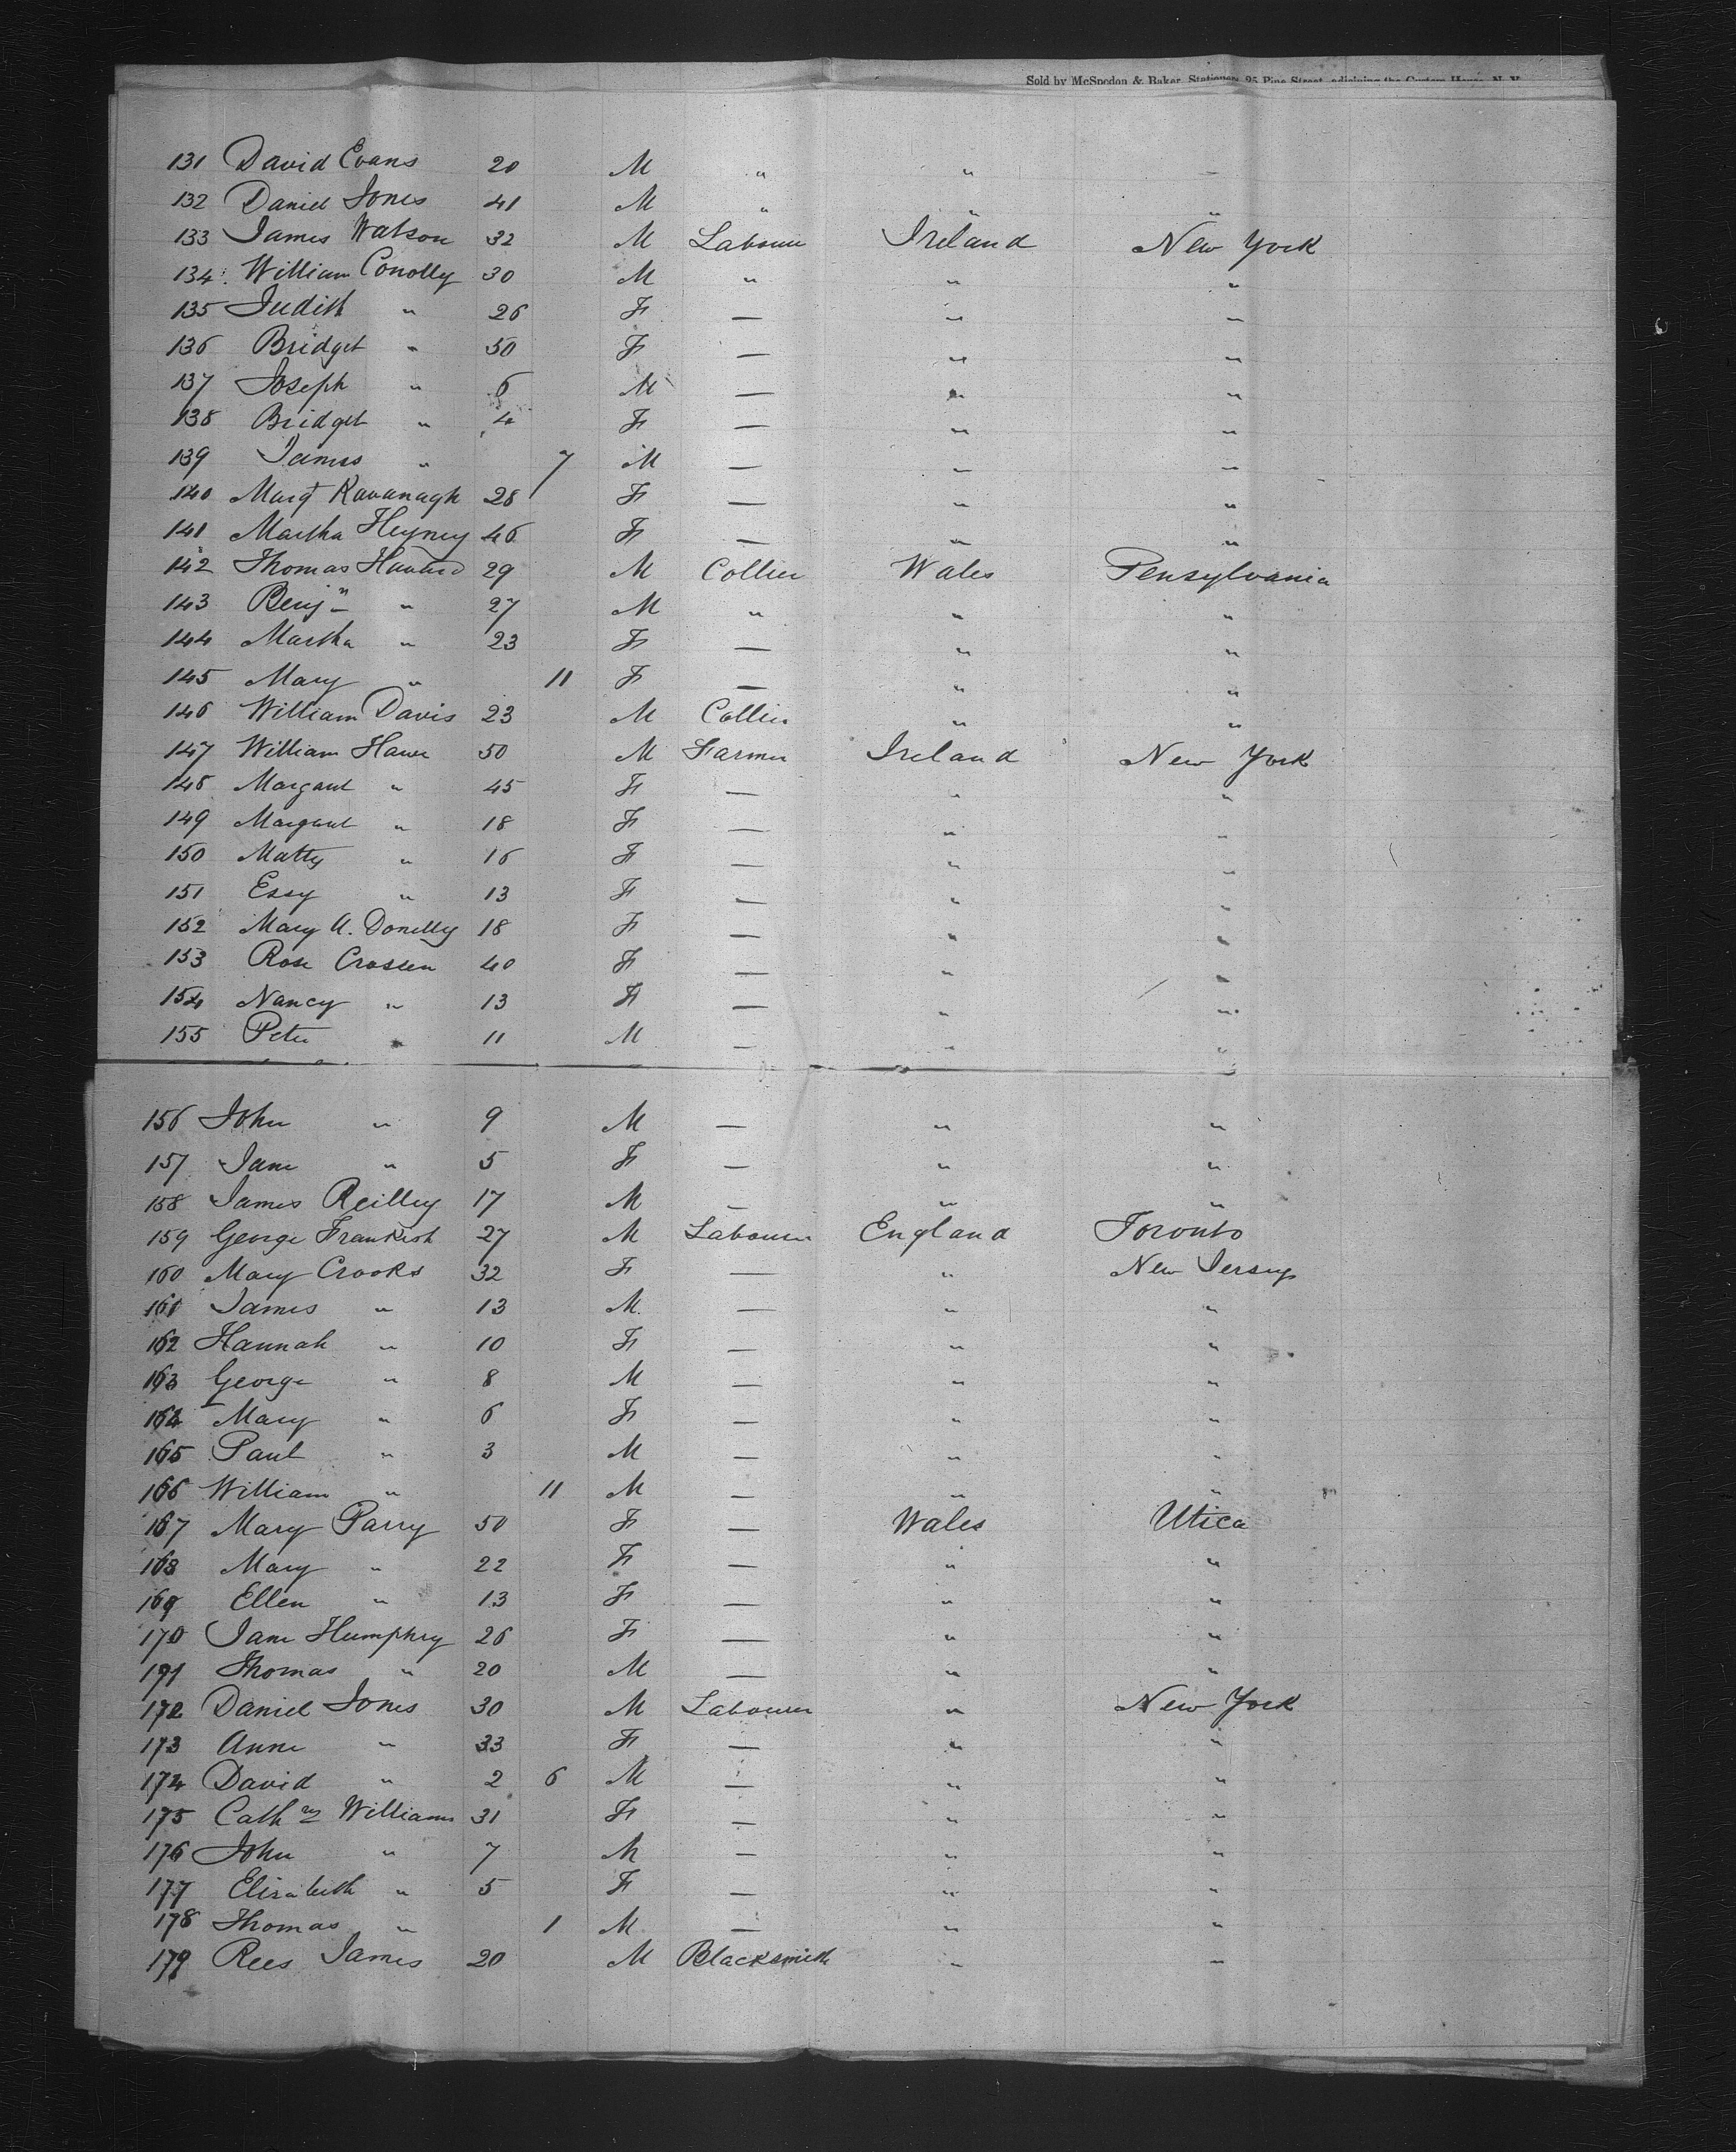 Sold by McSpedon & Baker, Stationers 25 Pine Street, adjoining the Custom House, N. Y.
131 David Evans 20 M " " "
132 Daniel Jones 41 M " " "
133 James Watson 32 M Labourer Ireland New York
134 William Conolly 30 M " " "
135 Judith " 26 F — " "
136 Bridget " 50 F — " "
137 Joseph " 6 M — " "
138 Bridget " 4 F — " "
139 James " 7 M — " "
140 Margt Kavanagh 28 F — " "
141 Martha Heyney 46 F — " "
142 Thomas Havard 29 M Collier Wales Pensylvania
143 Benjn " 27 M " " "
144 Martha " 23 F — " "
145 Mary " 11 F — " "
146 William Davis 23 M Collier " "
147 William Hawe 50 M Farmer Ireland New York
148 Margaret " 45 F — " "
149 Margaret " 18 F — " "
150 Matty " 16 F — " "
151 Essy " 13 F — " "
152 Mary A. Donelly 18 F — " "
153 Rose Crossen 40 F — " "
154 Nancy " 13 F — " "
155 Peter " 11 M — " "
156 John " 9 M — " "
157 Jane " 5 F — " "
158 James Reilley 17 M — " "
159 George Frankish 27 M Labourer England Toronto
160 Mary Crooks 32 F — " New Jersey
161 James " 13 M — " "
162 Hannah " 10 F — " "
163 George " 8 M — " "
164 Mary " 6 F — " "
165 Paul " 3 M — " "
166 William " 11 M — " "
167 Mary Parry 50 F — Wales Utica
168 Mary " 22 F — " "
169 Ellen " 13 F — " "
170 Jane Humphry 26 F — " "
171 Thomas " 20 M — " "
172 Daniel Jones 30 M Labourer " New York
173 Anne " 33 F — " "
174 David " 2 6 M — " "
175 Cathne Williams 31 F — " "
176 John " 7 M — " "
177 Elizabeth " 5 F — " "
178 Thomas " 1 M — " "
179 Rees James 20 M Blacksmith " "